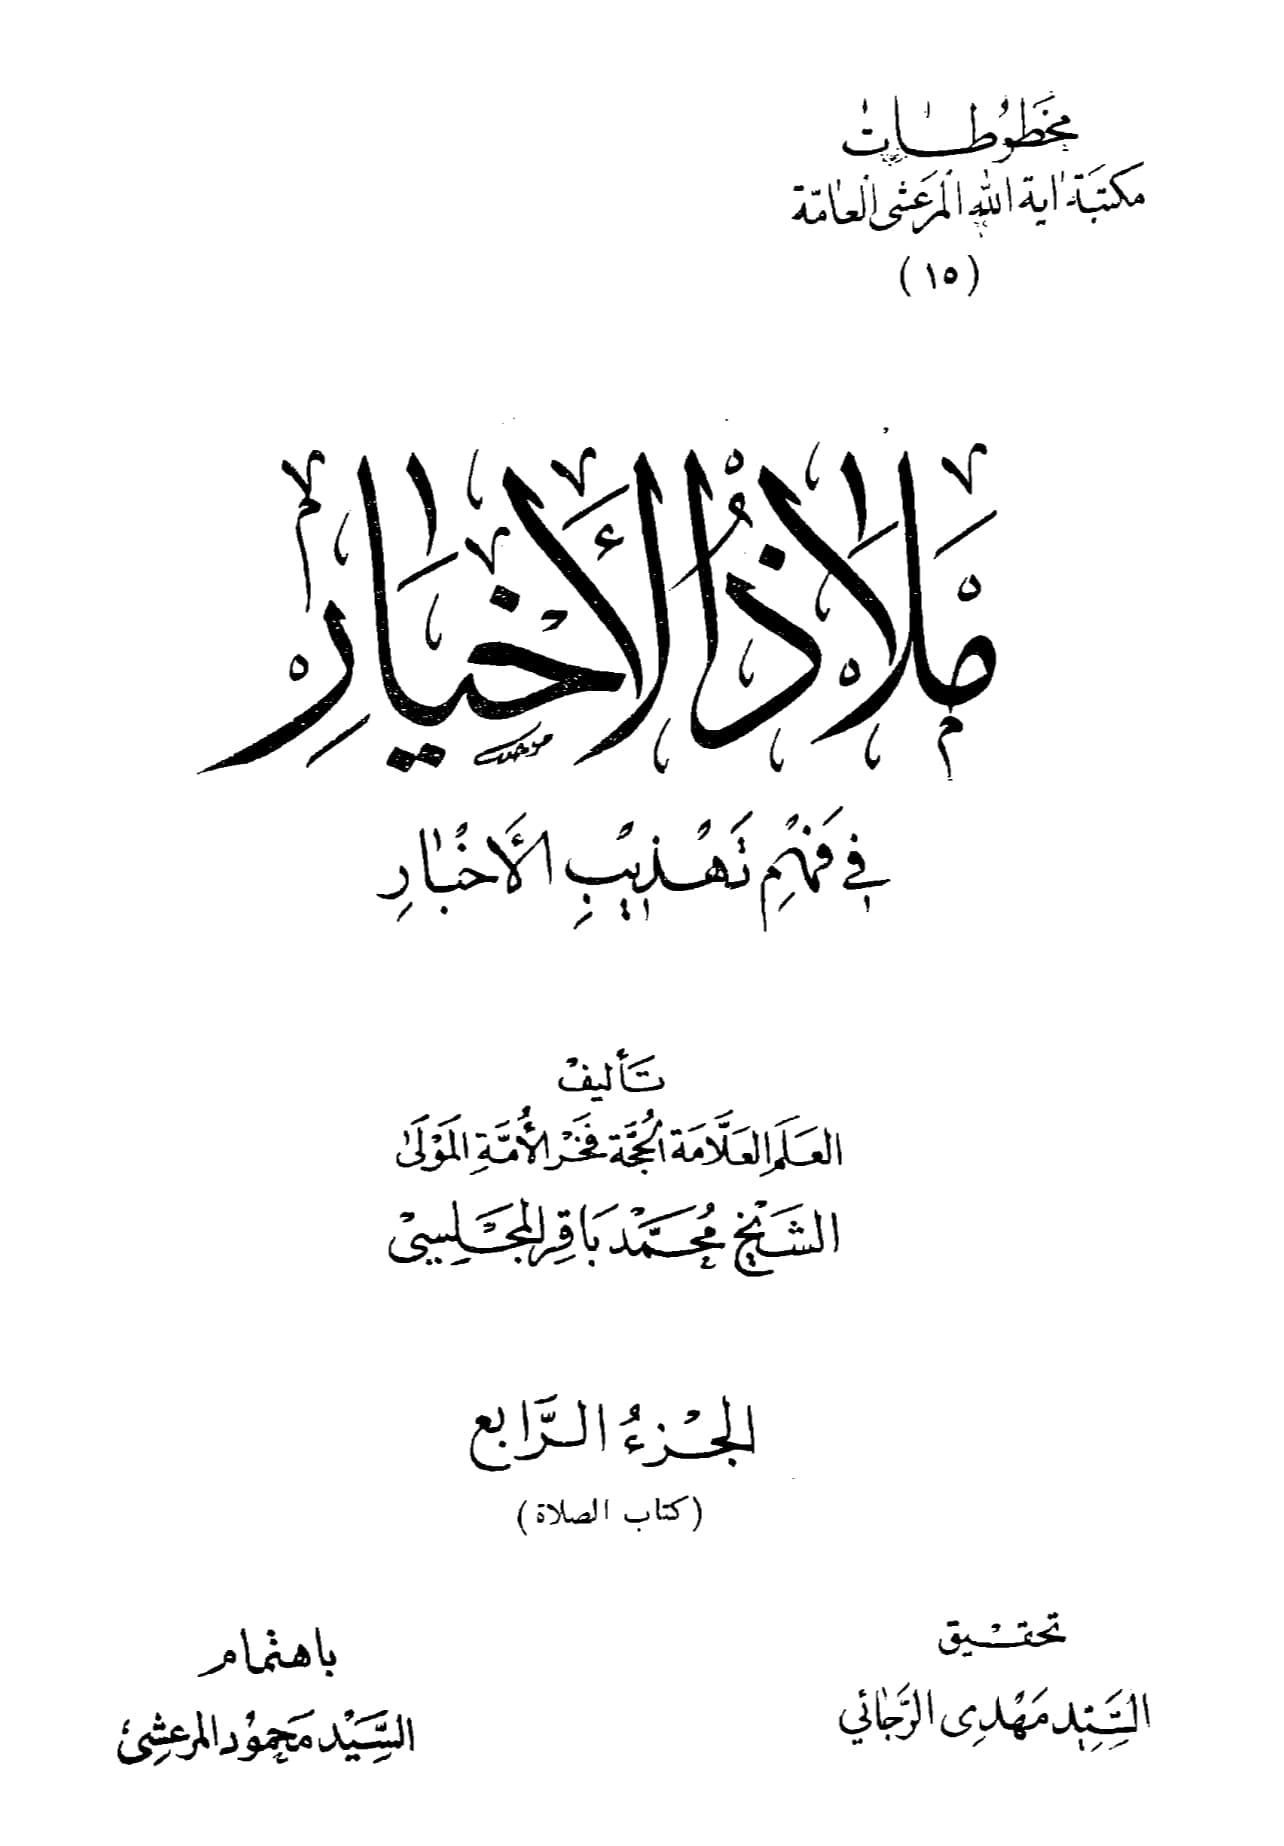 مخطوطات
مكتبة آية الله المرعشي العامة
(١٥)
مَلَاذُ الْأَخْيَارِ
فِي فَهْمِ تَهْذِيبِ الْأَخْبَارِ
تَأليفْ
العَلَم العَلَّامَة الحُجَّة فَخْر الأُمَّةِ المَوْلَىٰ
الشَيْخ مُحَمَّد بَاقِر المجْلِسِيْ
الجُزْءُ الرَّابع
(كتاب الصلاة)
تحقيق
السَّيِّد مَهْدي الرَّجَائي
باهتمام
السَّيِّدْ مَحمُود المرعشِي